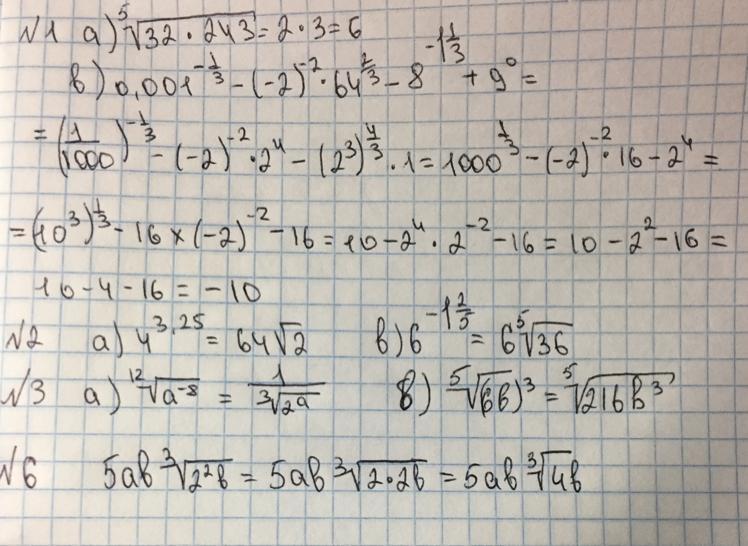 №1 а) ⁵√(32·243) = 2·3 = 6
в) 0,001^(-1/3) - (-2)^(-2) · 64^(2/3) - 8^(-1 1/3) + 9⁰ =
= (1/1000)^(-1/3) - (-2)^(-2) · 2⁴ - (2³)^(4/3) · 1 = 1000^(1/3) - (-2)^(-2) · 16 - 2⁴ =
= (10³)^(1/3) - 16 × (-2)^(-2) - 16 = 10 - 2⁴ · 2^(-2) - 16 = 10 - 2² - 16 =
10 - 4 - 16 = -10
№2 а) 4^(3,25) = 64√2 в) 6^(-1 2/5) = 6 ⁵√36
№3 а) ¹²√(a^(-8)) = 1/³√(2^a) в) ⁵√(6b)³ = ⁵√(216b³)
№6 5ab ³√(2²b) = 5ab ³√(2·2b) = 5ab ³√4b